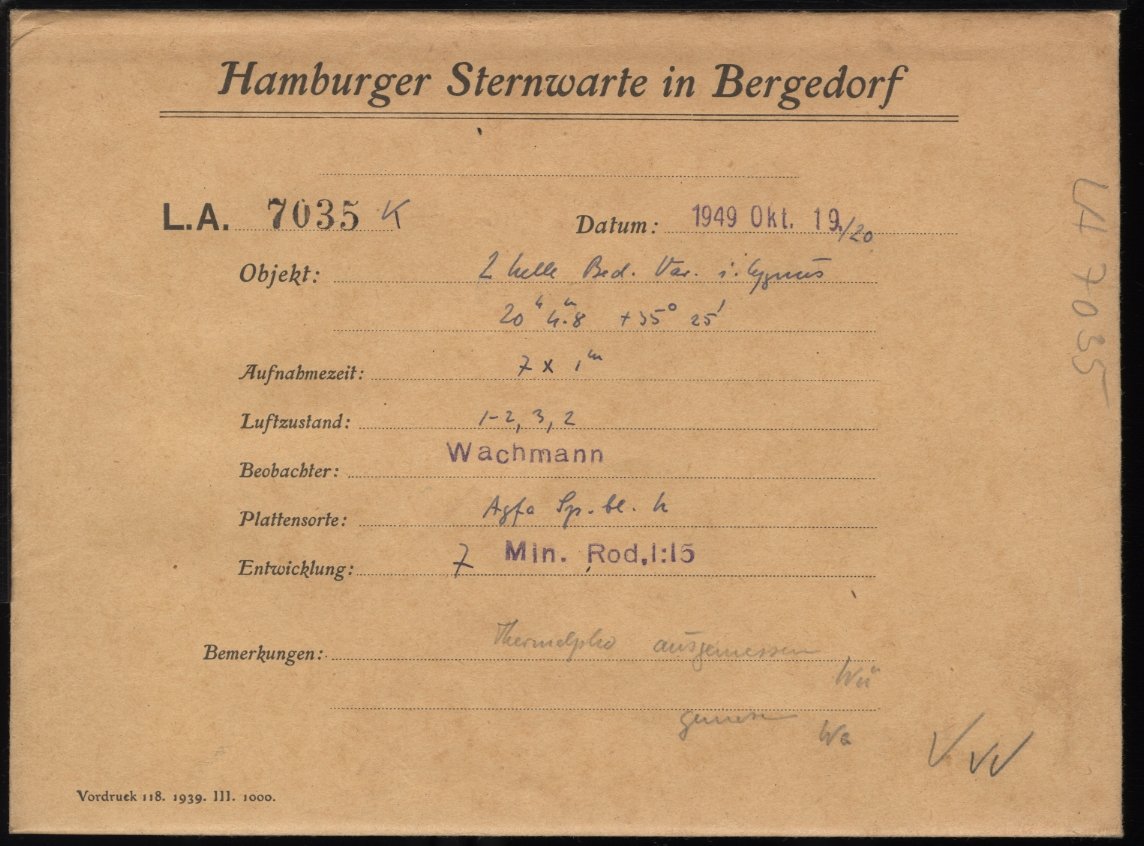 Hamburger Sternwarte in Bergedorf
L.A. 7035 K
Datum: 1949 Okt. 19./20
Objekt: 2 helle Bed. Var. i. Cygnus
20ʰ 4ᵐ.8 +35° 25'
Aufnahmezeit: 7 x 1ᵐ
Luftzustand: 1-2, 3, 2
Beobachter: Wachmann
Plattensorte: Agfa Sp. bl. h
Entwicklung: 7 Min. Rod, 1:15
Bemerkungen: ausgemessen
Wü
Wa
Vordruck 118. 1939. III. 1000.
LA 7035